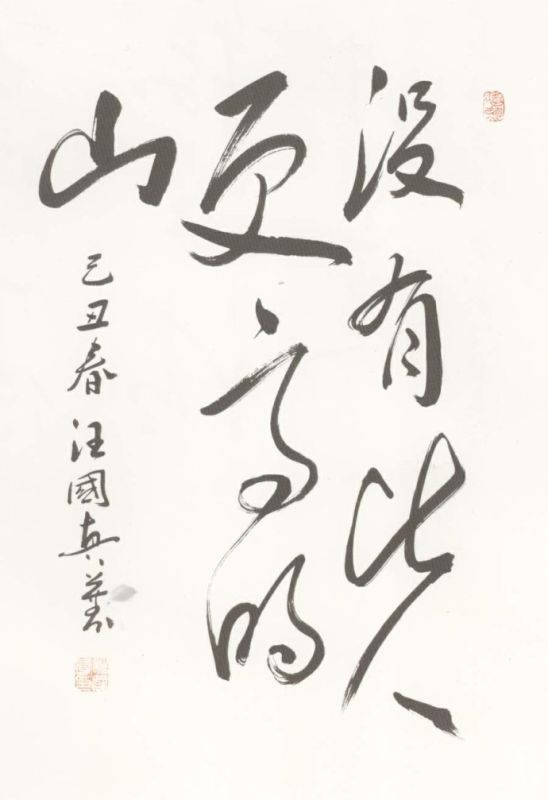 没有比人
更高的
山
己丑春汪國真書